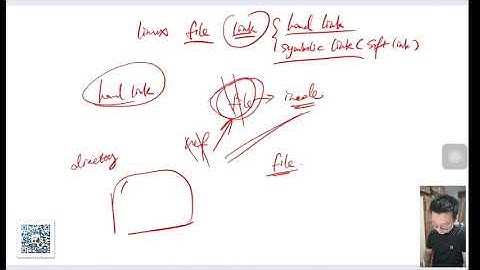 linux file link { hard link
symbolic link (soft link)
hard link
file → inode
ref
directory
file.